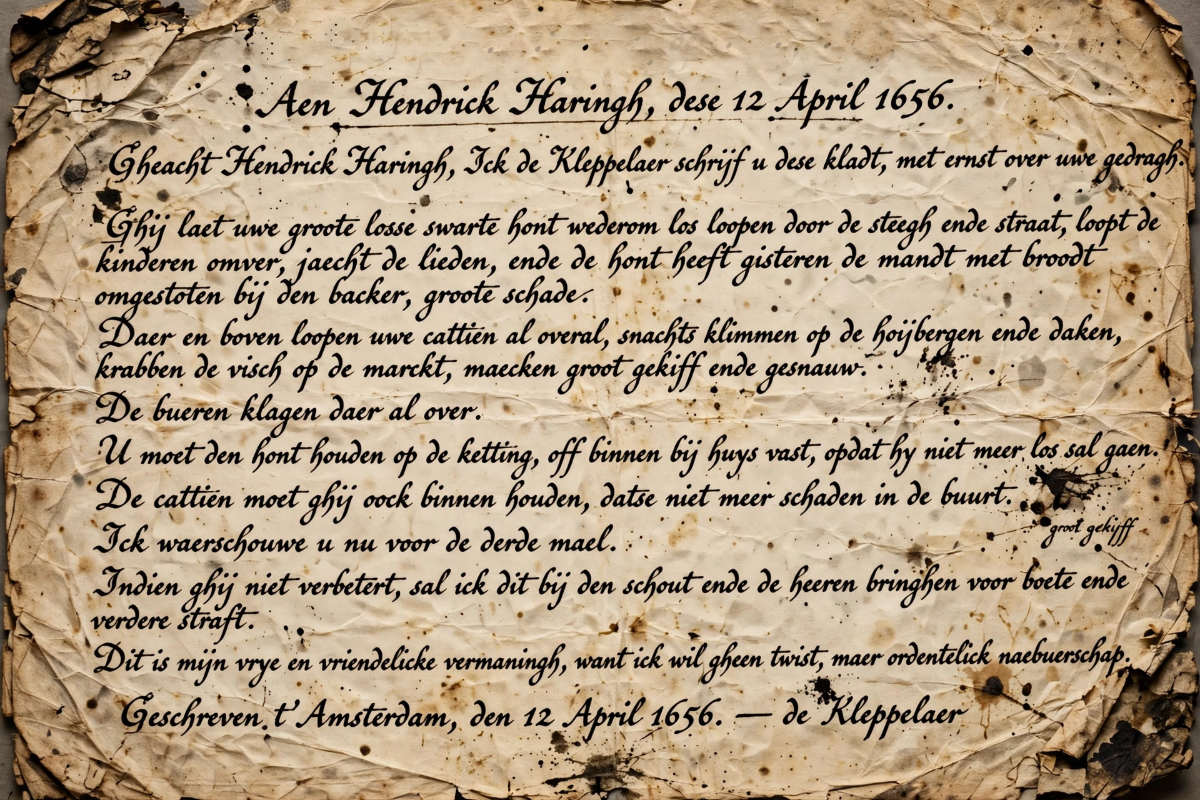 Aen Hendrick Haringh, dese 12 April 1656.
Gheacht Hendrick Haringh, Ick de Kleppelaer schrijf u dese kladt, met ernst over uwe gedragh.
Ghij laet uwe groote losse swarte hont wederom los loopen door de steegh ende straat, loopt de
kinderen omver, jaecht de lieden, ende de hont heeft gisteren de mandt met broodt
omgestoten bij den backer, groote schade.
Daer en boven loopen uwe cattien al overal, snachts klimmen op de hoijbergen ende daken,
krabben de visch op de marckt, maecken groot gekiff ende gesnauw.
De bueren klagen daer al over.
U moet den hont houden op de ketting, off binnen bij huys vast, opdat hy niet meer los sal gaen.
De cattien moet ghij oock binnen houden, datse niet meer schaden in de buurt.
groot gekijff
Ick waerschouwe u nu voor de derde mael.
Indien ghij niet verbetert, sal ick dit bij den schout ende de heeren bringhen voor boete ende
verdere straft.
Dit is mijn vrye en vriendelicke vermaningh, want ick wil gheen twist, maer ordentelick naebuerschap.
Geschreven t' Amsterdam, den 12 April 1656. — de Kleppelaer